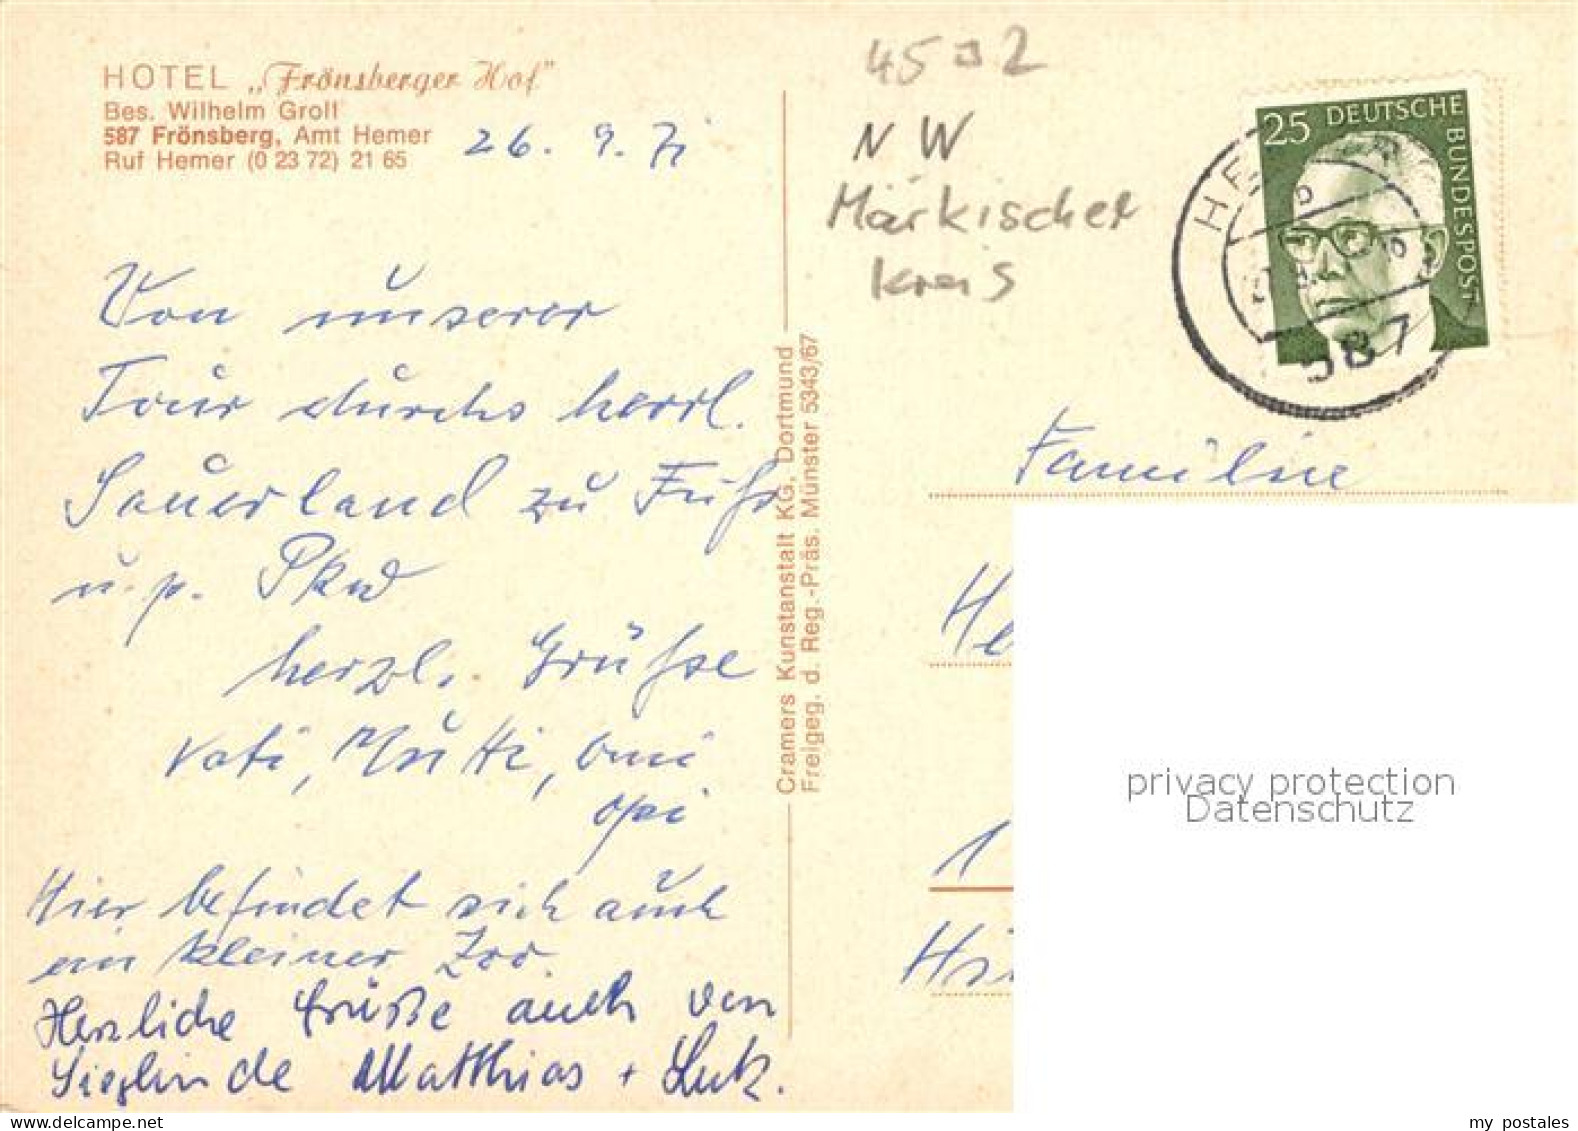 HOTEL „Frönsberger Hof"
Bes. Wilhelm Groll
587 Frönsberg, Amt Hemer
Ruf Hemer (0 23 72) 21 65
26. 9. 71
Von unserer
Tour durchs herrl.
Sauerland zu Fuß
u. p. Pkw
herzl. Grüße
Vati, Mutti, Omi
Opi
Hier befindet sich auch
ein kleiner Zoo.
Herzliche Grüße auch von
Sieglinde Matthias + Lutz.
Cramers Kunstanstalt KG, Dortmund
Freigeg. d. Reg.-Präs. Münster 5343/67
NW
Märkischer
Kreis
25 DEUTSCHE
BUNDESPOST
587
Familie
He
1
privacy protection
Datenschutz
my postales